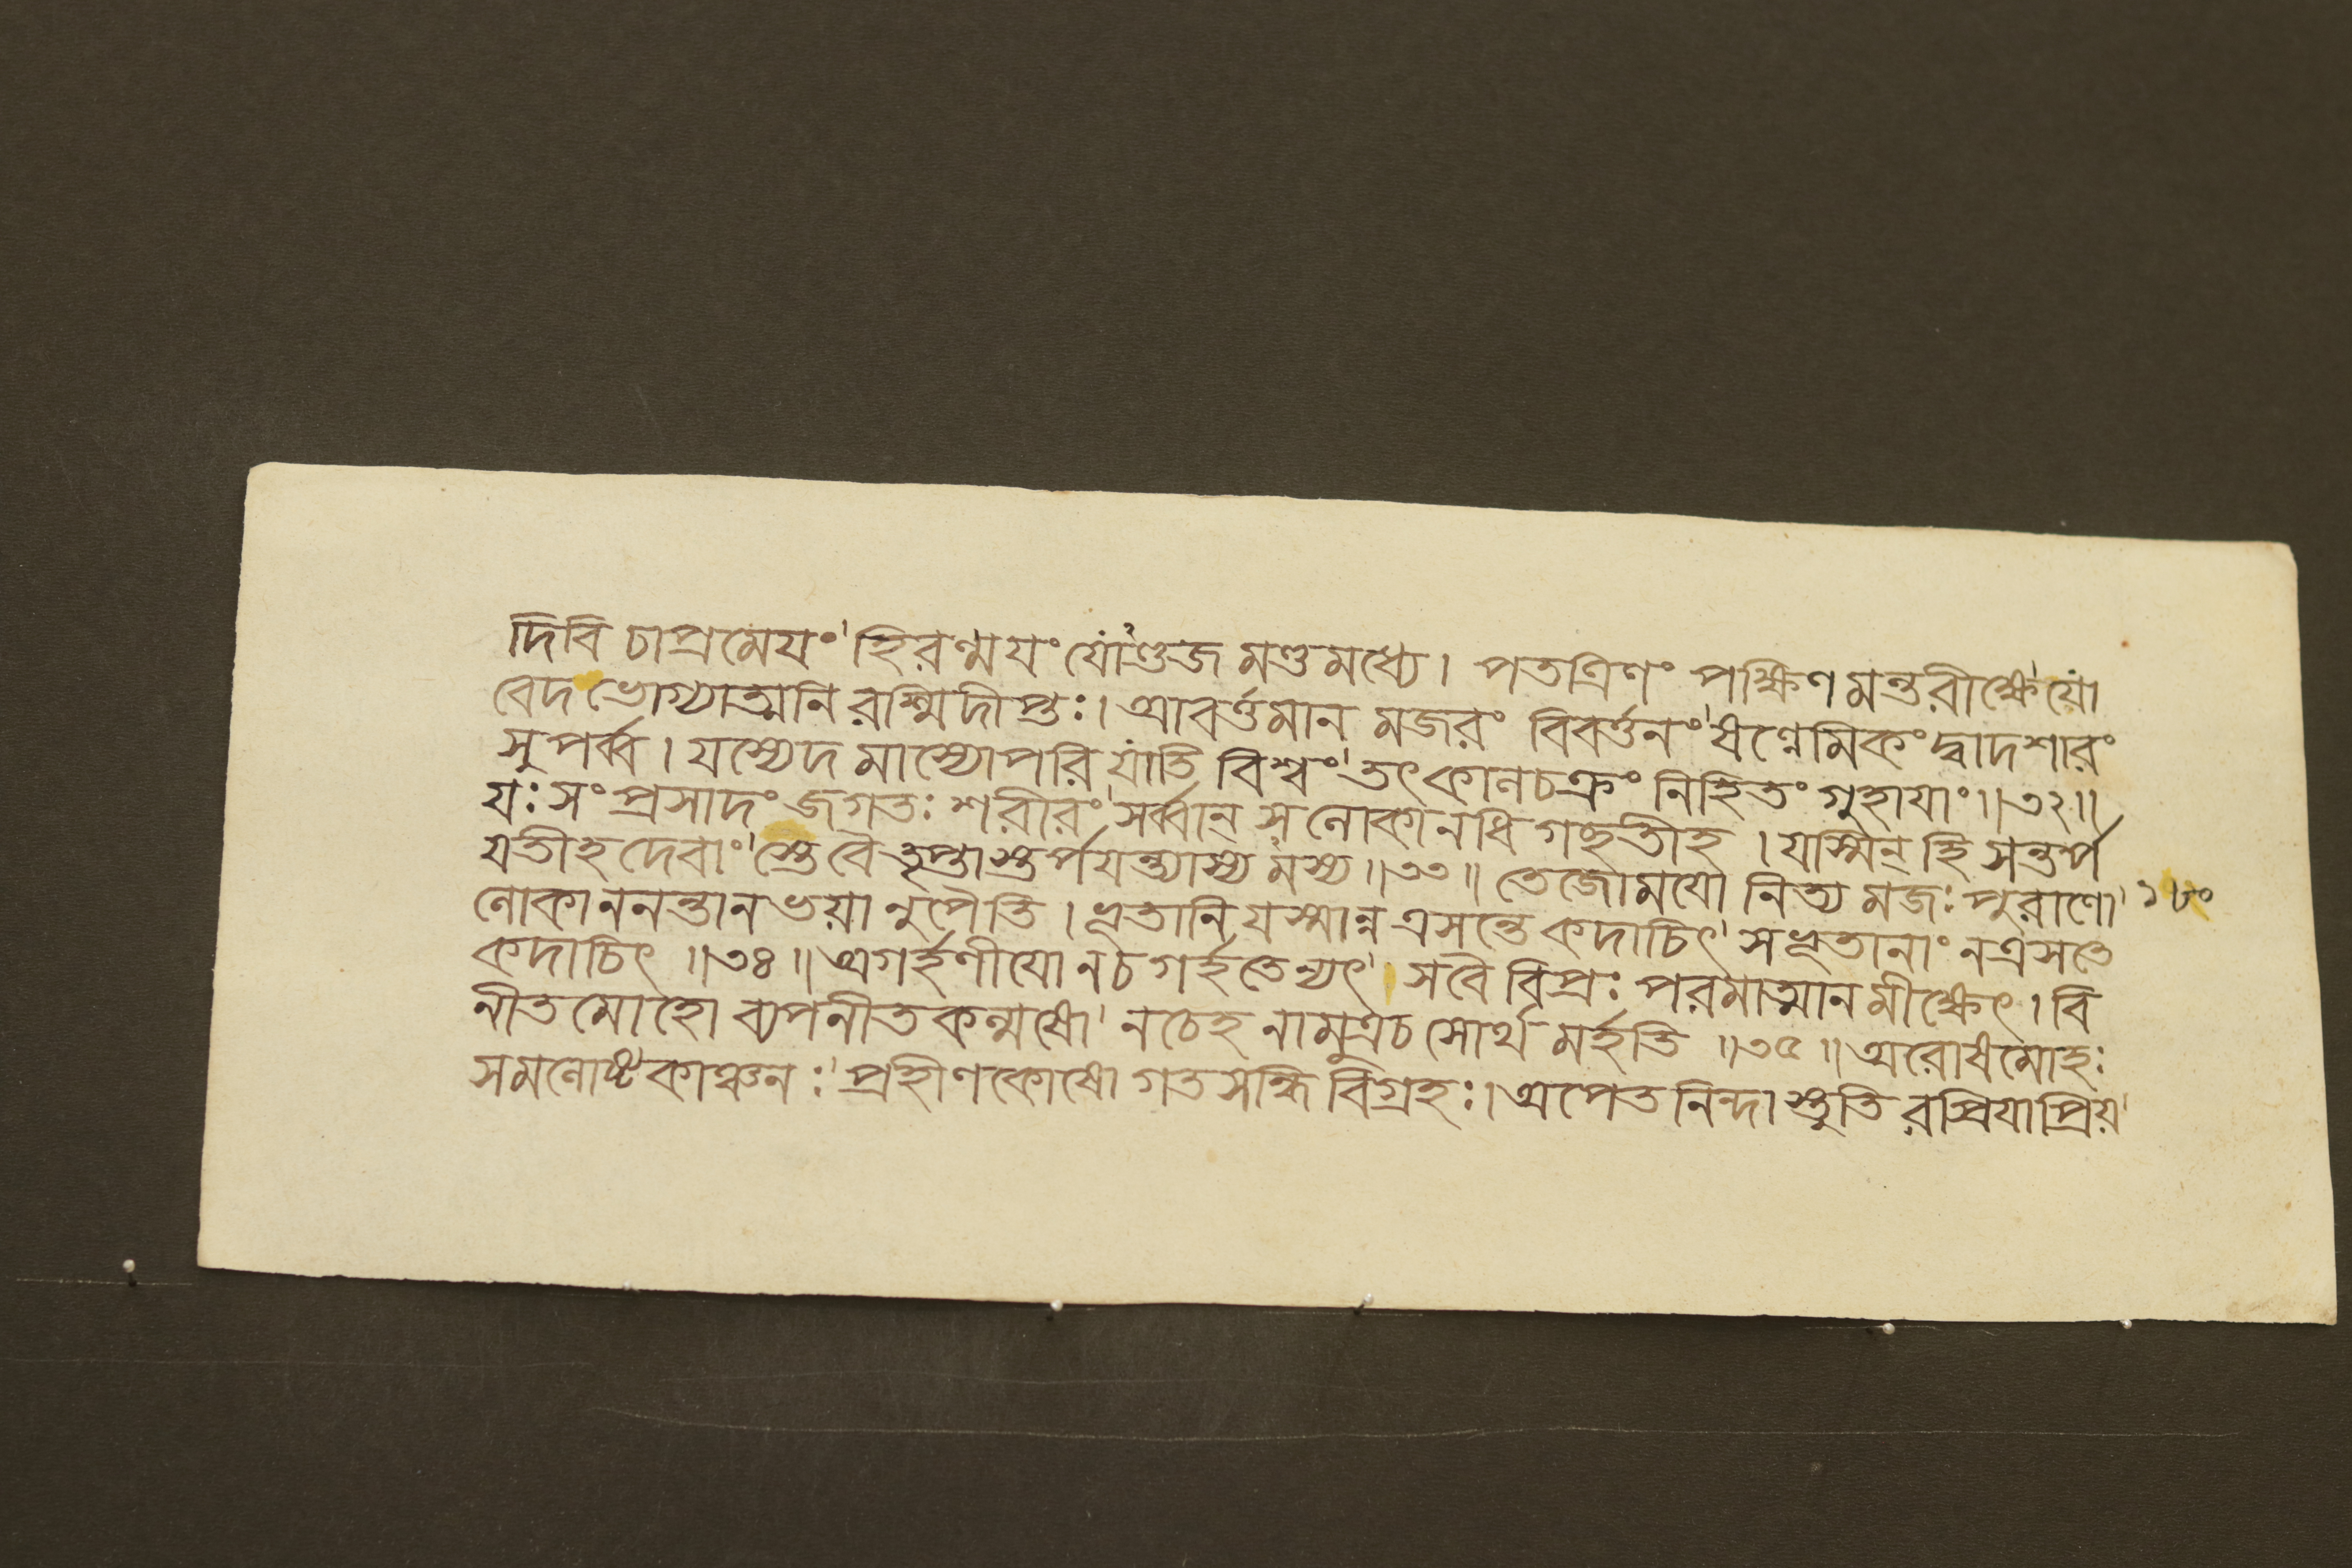 দিবি চাপ্রমেযং' হিরণ্ময়ং যোঁণ্ডজ মণ্ডমধ্যে। পতত্রিণং পক্ষিণমন্তরীক্ষে'যো
বেদ ভোগ্যাত্মনি রশ্মিদীপ্তঃ। আবর্ত্তমান মজরং বিবর্ত্তনং'ষণ্নেমিকং দ্বাদশারং
সুপর্ব্ব। যস্যেদ মাস্যোপরি যাতি বিশ্বং'তৎকালচক্রং নিহিতং গুহাযাং॥৩২॥
যঃ সংপ্রসাদং জগতঃ শরীরং'সর্ব্বান্ স লোকানধি গচ্ছতীহ। যস্মিন্ হি সন্তর্প
যতীহ দেবাং'স্তেবৈ তৃপ্তাস্তর্পযন্ত্যাস্য মস্য॥৩৩॥ তেজোমযো নিত্য মজঃ পুরাণো' ১৮০
লোকাননন্তানভয়ানুপৈতি। ভূতানি যস্মান্ন ত্রসন্তে কদাচিৎ' সভূতানাং নত্রসতে
কদাচিৎ ॥৩৪॥ অগর্হণীযো নচ গর্হতেন্যৎ' সবৈ বিপ্রঃ পরমাত্মানমীক্ষেৎ। বি
নীতমোহো ব্যপনীতকল্মষো' নচেহ নামুত্রচ সোর্থ মর্হতি ॥৩৫॥ অরোষমোহঃ
সমলোষ্টকাঞ্চনঃ' প্রহীণকোষো গতসন্ধি বিগ্রহঃ। অপেত নিন্দা স্তুতি রপ্রিযাপ্রিয়'